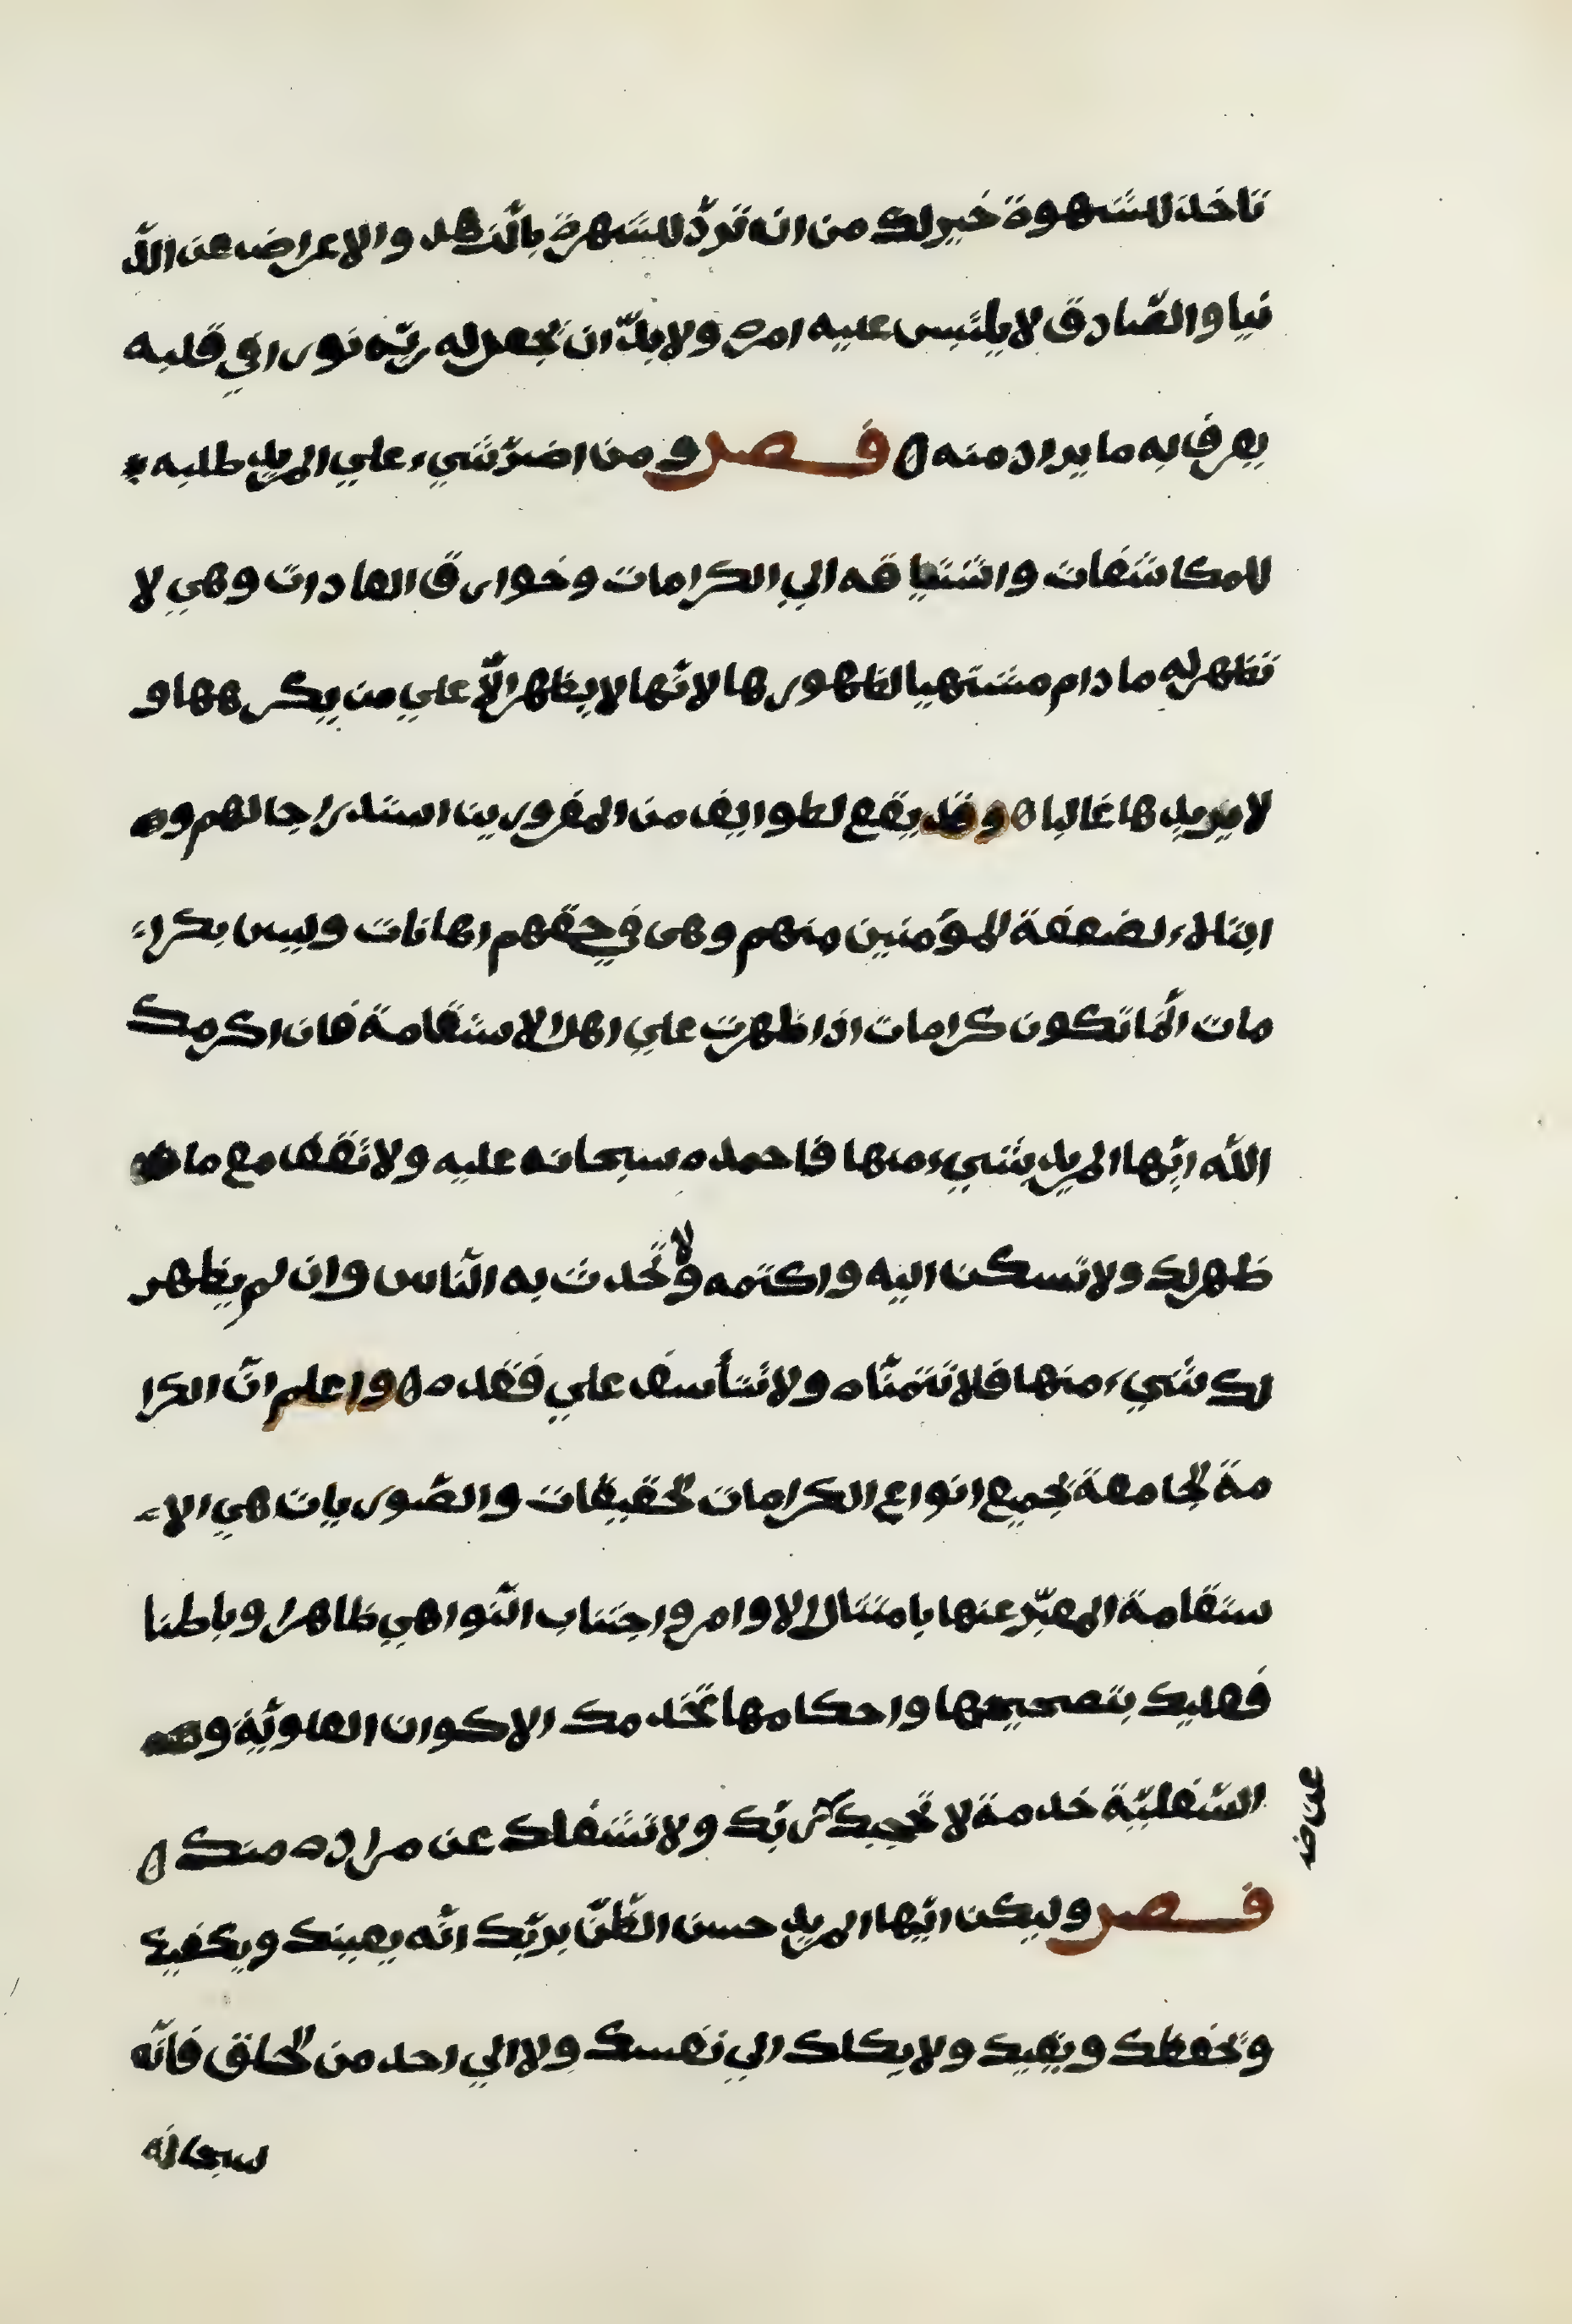 تاخذ للشهوة خير لك من ان تردّ للشهرة بالّزهد والاعراض عن الد
نيا والصّادق لا يلتبس عليه امره ولا بدّ ان يجعل له ربّه نورا في قلبه
يعرف به ما يراد منه فصل ومن اضرّ شيء علي المريد طلبه
للمكاشفات واشتياقه الي الكرامات وخوارق العادات وهي لا
تظهر له ما دام مشتهيا لظهورها لانّها لا يظهر الّا علي من يكرهها و
لا يريدها غالبا وقد يقع لطوايف من المغرورين استدراجا لهم و
ابتلاء لضعفة المؤمنين منهم وهي في حقهم اهانات وليس بكرا
مات انّما تكون كرامات اذا ظهرت علي اهل الاستقامة فان اكرمك
اللّه ايّها المريد بشيء منها فاحمده سبحانه عليه ولا تقف مع ما
ظهر لك ولا تسكن اليه واكتمه ولا تحدث به النّاس وان لم يظهر
لك شيء منها فلا تتمنّاه ولا تتأسف علي فقده واعلم انّ الكرا
مة الجامعة لجميع انواع الكرامات الحقيقات والصّوريات هي الا
ستقامة المعبّر عنها بامتثال الاوامر واجتناب النّواهي ظاهرا وباطنا
فعليك بتصحيحها واحكامها تخدمك الاكوان العلويّة و
السّفليّة خدمة لا تحجبك عن ربّك ولا تشغلك عن مراده منك
فصل وليكن ايّها المريد حسن الظّنّ بربّك انّه يعينك ويكفيك
ويحفظك ويقيك ولا يكلك الي نفسك ولا الي احد من الخلق فانّه
سبحانه